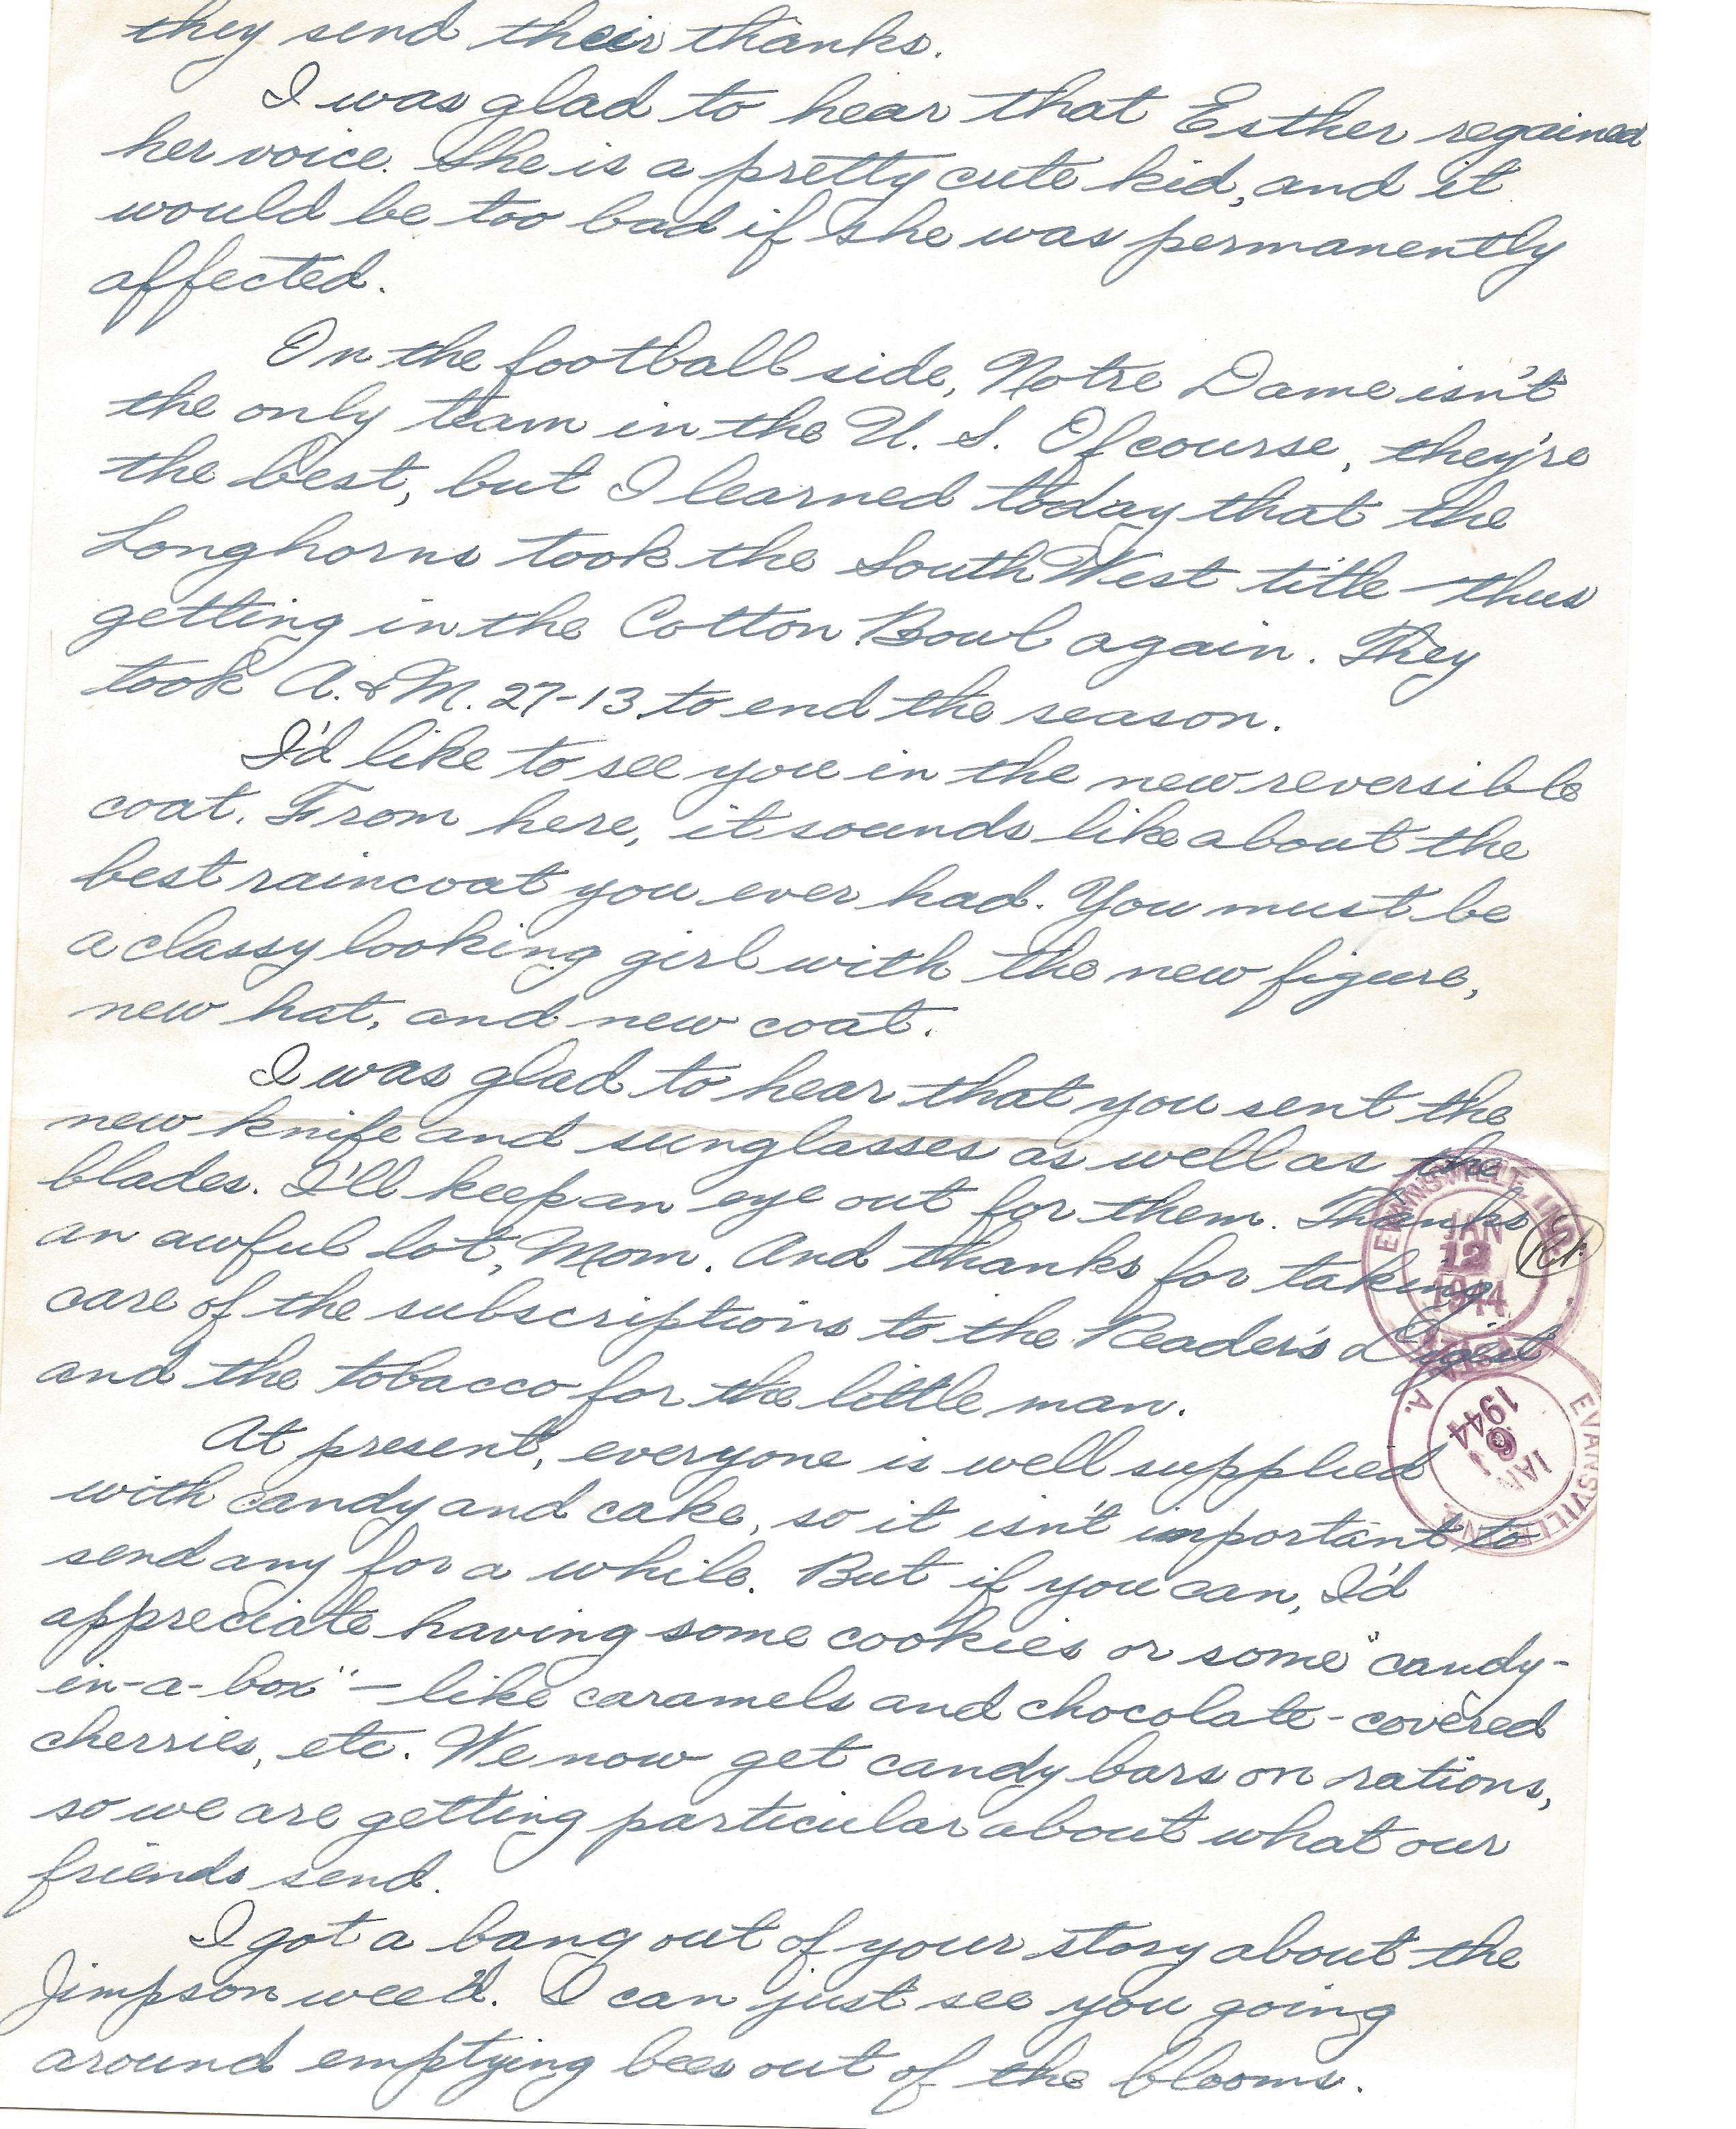 they send their thanks.
I was glad to hear that Esther regained
her voice. She is a pretty cute kid, and it
would be too bad if she was permanently
affected.
On the football side, Notre Dame isn't
the only team in the U. S. Of course, they're
the best, but I learned today that the
Longhorns took the South West title - thus
getting in the Cotton Bowl again. They
took A. & M. 27-13 to end the season.
I'd like to see you in the new reversible
coat. From here, it sounds like about the
best raincoat you ever had. You must be
a classy looking girl with the new figure,
new hat, and new coat.
I was glad to hear that you sent the
new knife and sunglasses as well as the
blades. I'll keep an eye out for them. Thanks
an awful lot, Mom. And thanks for taking
care of the subscriptions to the Reader's Digest
and the tobacco for the little man.
At present, everyone is well supplied
with candy and cake, so it isn't important to
send any for a while. But if you can, I'd
appreciate having some cookies or some "candy-
in-a-box" - like caramels and chocolate-covered
cherries, etc. We now get candy bars on rations,
so we are getting particular about what our
friends send.
I got a bang out of your story about the
Jimpson weed. I can just see you going
around emptying bees out of the blooms.
EVANSVILLE, IND.
JAN
1944
EVANSVILLE, IND.
JAN
6
1944